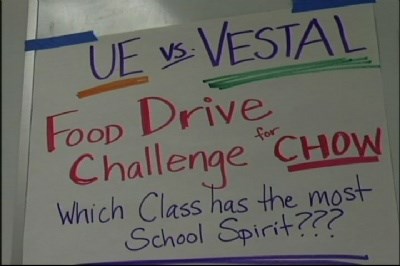 UE vs. VESTAL
FOOD DRIVE
Challenge for CHOW
Which Class has the most
School Spirit???